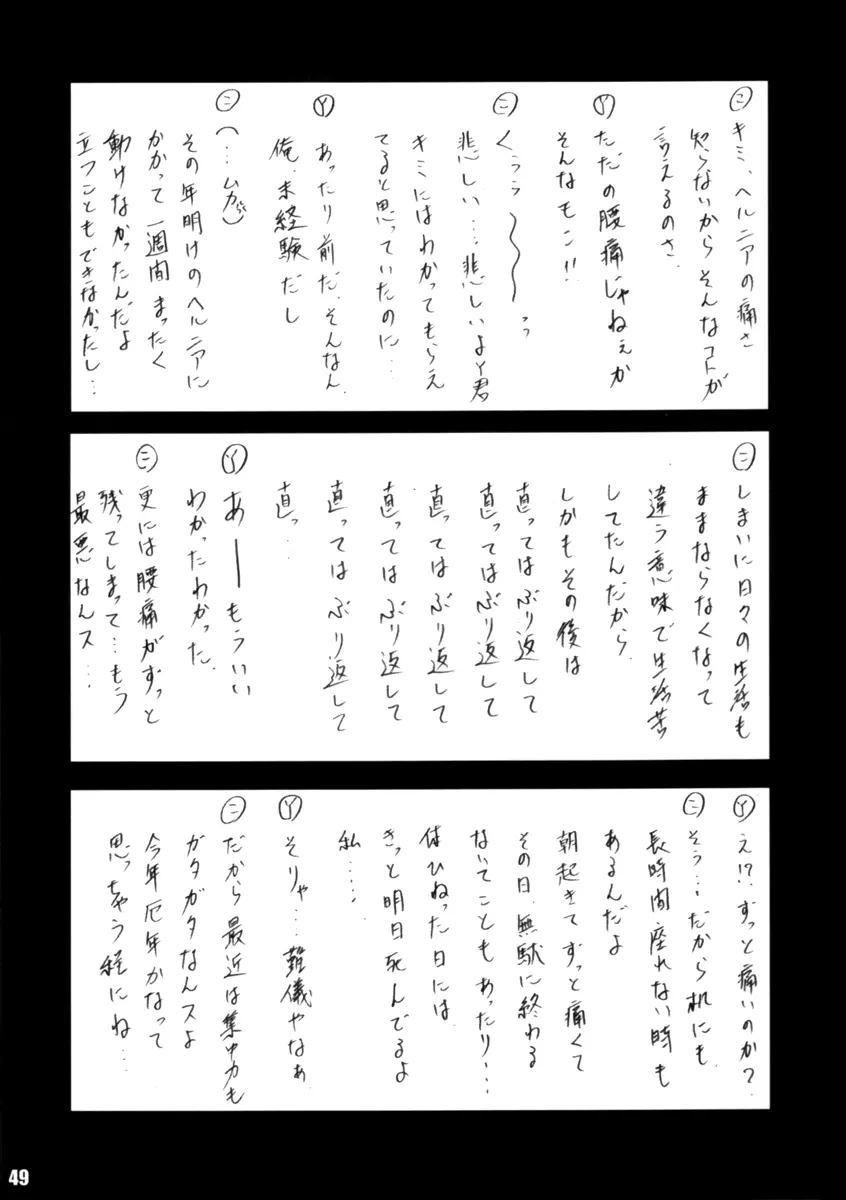 ㋥キミ、ヘルニアの痛さ
知らないからそんなコトが
言えるのさ.
Ⓨただの腰痛じゃねぇか
そんなもこ!!
㋥くぅぅ〜〜〜っ
悲しい…悲しいよY君
キミにはわかってもらえ
てると思っていたのに…
Ⓨあったり前だ.そんなん.
俺.未経験だし
㋥(…ムカ)
その年明けのヘルニアに
かかって一週間まったく
動けなかったんだよ
立つこともできなかったし…
㋥しまいに日々の生活も
ままならなくなって
違う意味で生活苦
してたんだから.
しかもその後は
直ってはぶり返して
直ってはぶり返して
直ってはぶり返して
直ってはぶり返して
直ってはぶり返して
直っ…
Ⓨあーもういい
わかったわかった.
㋥更には腰痛がずっと
残ってしまって…もう
最悪なんス…
Ⓨえ!?ずっと痛いのか?
㋥そう…だから机にも
長時間座れない時も
あるんだよ
朝起きてずっと痛くて
その日.無駄に終わる
ないてこともあったり…
体ひねった日には
きっと明日死んでるよ
私….
Ⓨそりゃ…難儀やなぁ
㋥だから最近は集中力も
ガタガタなんスよ
今年厄年かなって
思っちゃう程にね…
49